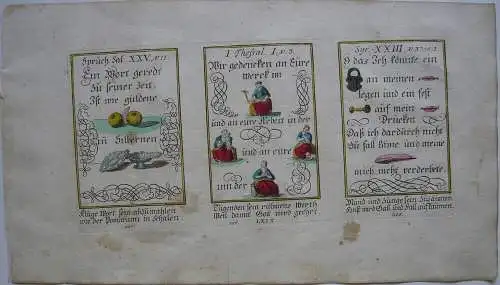 Sprüch Sal. XXV. v. 11
Ein Wort geredt
Zu seiner Zeit,
Ist wie güldene
in Silbernen
Kluge Wort sein abzumahlen
wie der Pomerantz in Schalen
I Thessal. I. v. 3.
Wir gedencken an Eure
Werck im
und an eure Arbeit in der
und an eure
in der
Tugenden sein rühmens Werth
Weil damit Gott wird geehrt
Syr. XXIII
O das Ich könnte ein
an meinen
legen und ein fest
auf mein
Drucken
Daß ich dardurch nicht
Zu fall käme und meine
mich nicht verderbete.
Mund und Zunge sein